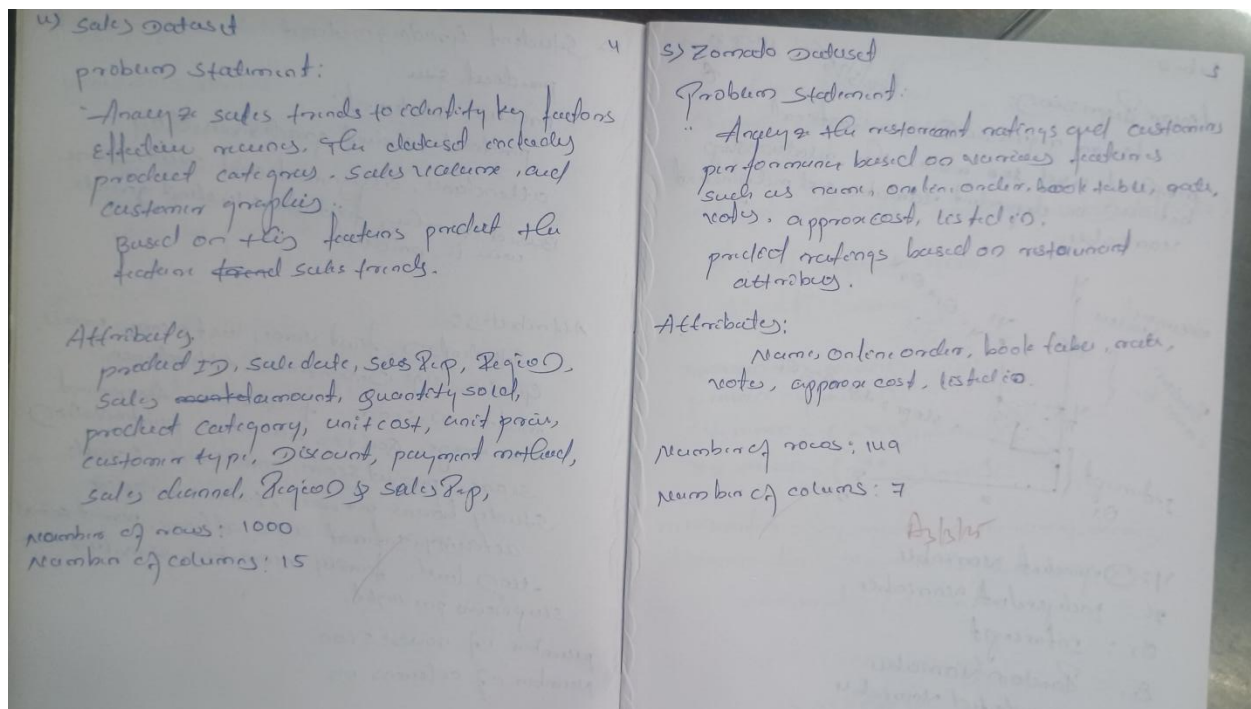 4) Sales Dataset
4
problem statement:
Analyze sales trends to identify key factors
Effective The dataset includes
product categorys, sales volume, and
customer graphics.
Based on this features predict the
feature trend sales trends.
Attributes.
product ID, sale date, sales Rep, Region,
sales amount, quantity sold,
product category, unit cost, unit price,
customer type, Discount, payment method,
sales channel, Region & sales Rep,
Number of rows: 1000
Number of columns: 15
5) Zomato Dataset
5
Problem statement:
Analyze the restaurant ratings and customers
performance based on various features
such as name, online order, book table, rate,
votes, approx cost, listed in.
predict ratings based on restaurant
attributes.
Attributes:
Name, online order, book table, rate,
votes, approx cost, listed in.
Number of rows: 149
Number of colums: 7